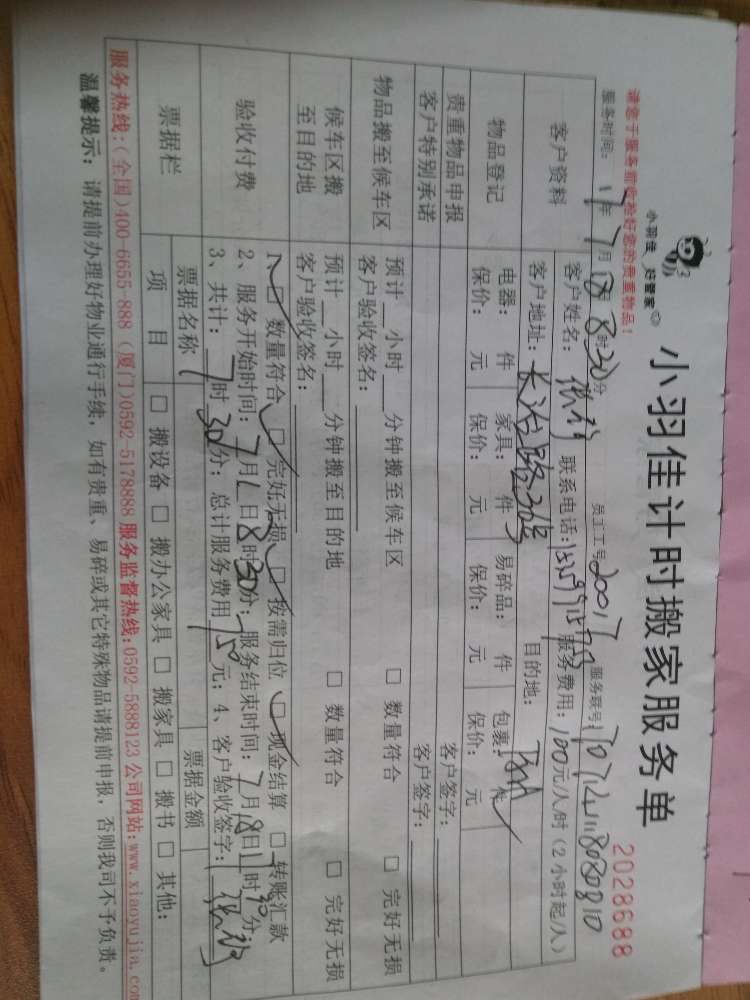 小羽佳 好管家
小羽佳计时搬家服务单
2028688
请您于服务前收拾好您的贵重物品！
服务时间： 年 7月18日8时30分 员工工号 20017 服务联号：
客户资料
客户姓名： 联系电话： 服务费用：100元/人/时（2小时起/人）
客户地址：长治路 目的地：
物品登记
电器： 件 家具： 件 易碎品： 件 包裹： 件
保价： 元 保价： 元 保价： 元 保价： 元
贵重物品申报 客户签字：
客户特别承诺 客户签字：
物品搬至候车区
预计 小时 分钟搬至候车区 □ 数量符合 □ 完好无损
客户验收签名：
候车区搬至目的地
预计 小时 分钟搬至目的地 □ 数量符合 □ 完好无损
客户验收签名：
验收付费
1、□ 数量符合 □ 完好无损 □ 按需归位 □ 现金结算 □ 转账汇款
2、服务开始时间：7月 日8时30分；服务结束时间：7月18日 时30分；
3、共计： 时30分；总计服务费用 150元；4、客户验收签字：
票据栏
票据名称 票据金额
项 目 □ 搬设备 □ 搬办公家具 □ 搬家具 □ 搬书 □ 其他：
服务热线：（全国）400-6655-888（厦门）0592-5178888 服务监督热线：0592-5888123 公司网站：www.xiaoyujia.com
温馨提示：请提前办理好物业通行手续，如有贵重、易碎或其它特殊物品请提前申报，否则我司不予负责。